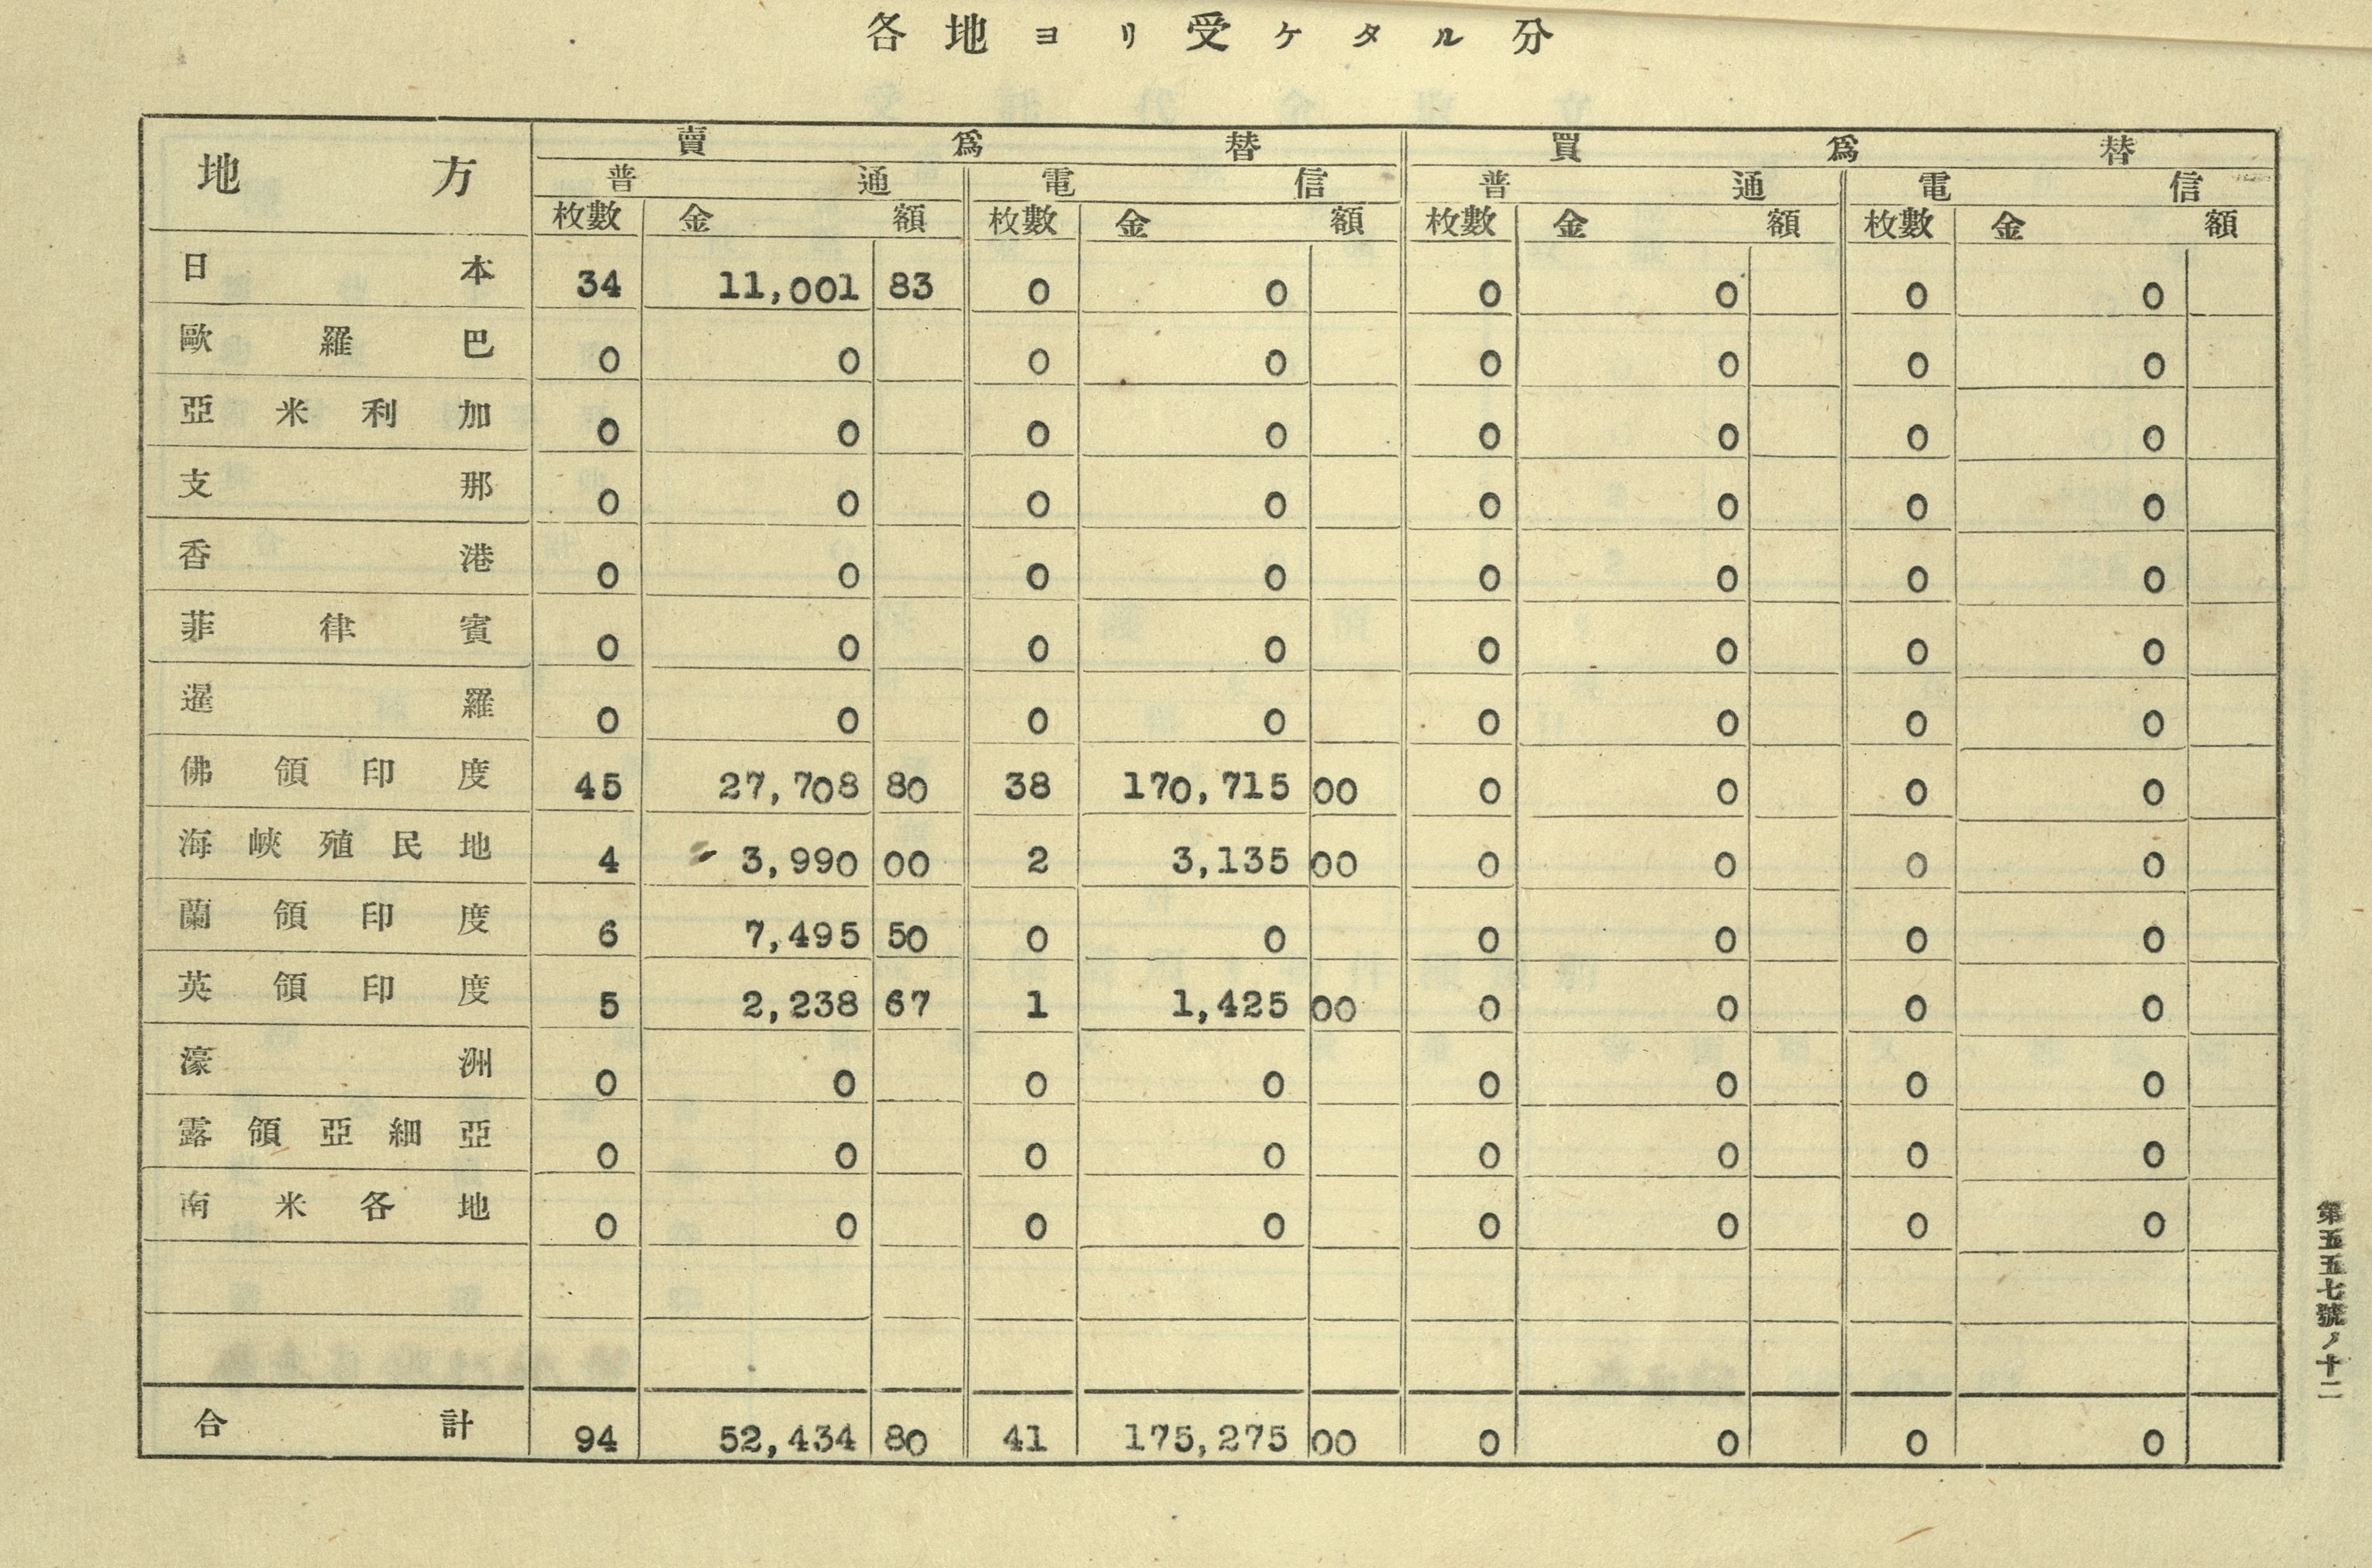 各地ヨリ受ケタル分
地方 賣爲替 買爲替
普通 電信 普通 電信
枚數 金額 枚數 金額 枚數 金額 枚數 金額
日本 34 11,001 83 0 0 0 0 0 0
歐羅巴 0 0 0 0 0 0 0 0
亞米利加 0 0 0 0 0 0 0 0
支那 0 0 0 0 0 0 0 0
香港 0 0 0 0 0 0 0 0
菲律賓 0 0 0 0 0 0 0 0
暹羅 0 0 0 0 0 0 0 0
佛領印度 45 27,708 80 38 170,715 00 0 0 0 0
海峽殖民地 4 3,990 00 2 3,135 00 0 0 0 0
蘭領印度 6 7,495 50 0 0 0 0 0 0
英領印度 5 2,238 67 1 1,425 00 0 0 0 0
濠洲 0 0 0 0 0 0 0 0
露領亞細亞 0 0 0 0 0 0 0 0
南米各地 0 0 0 0 0 0 0 0
合計 94 52,434 80 41 175,275 00 0 0 0 0
第五五七號ノ十二